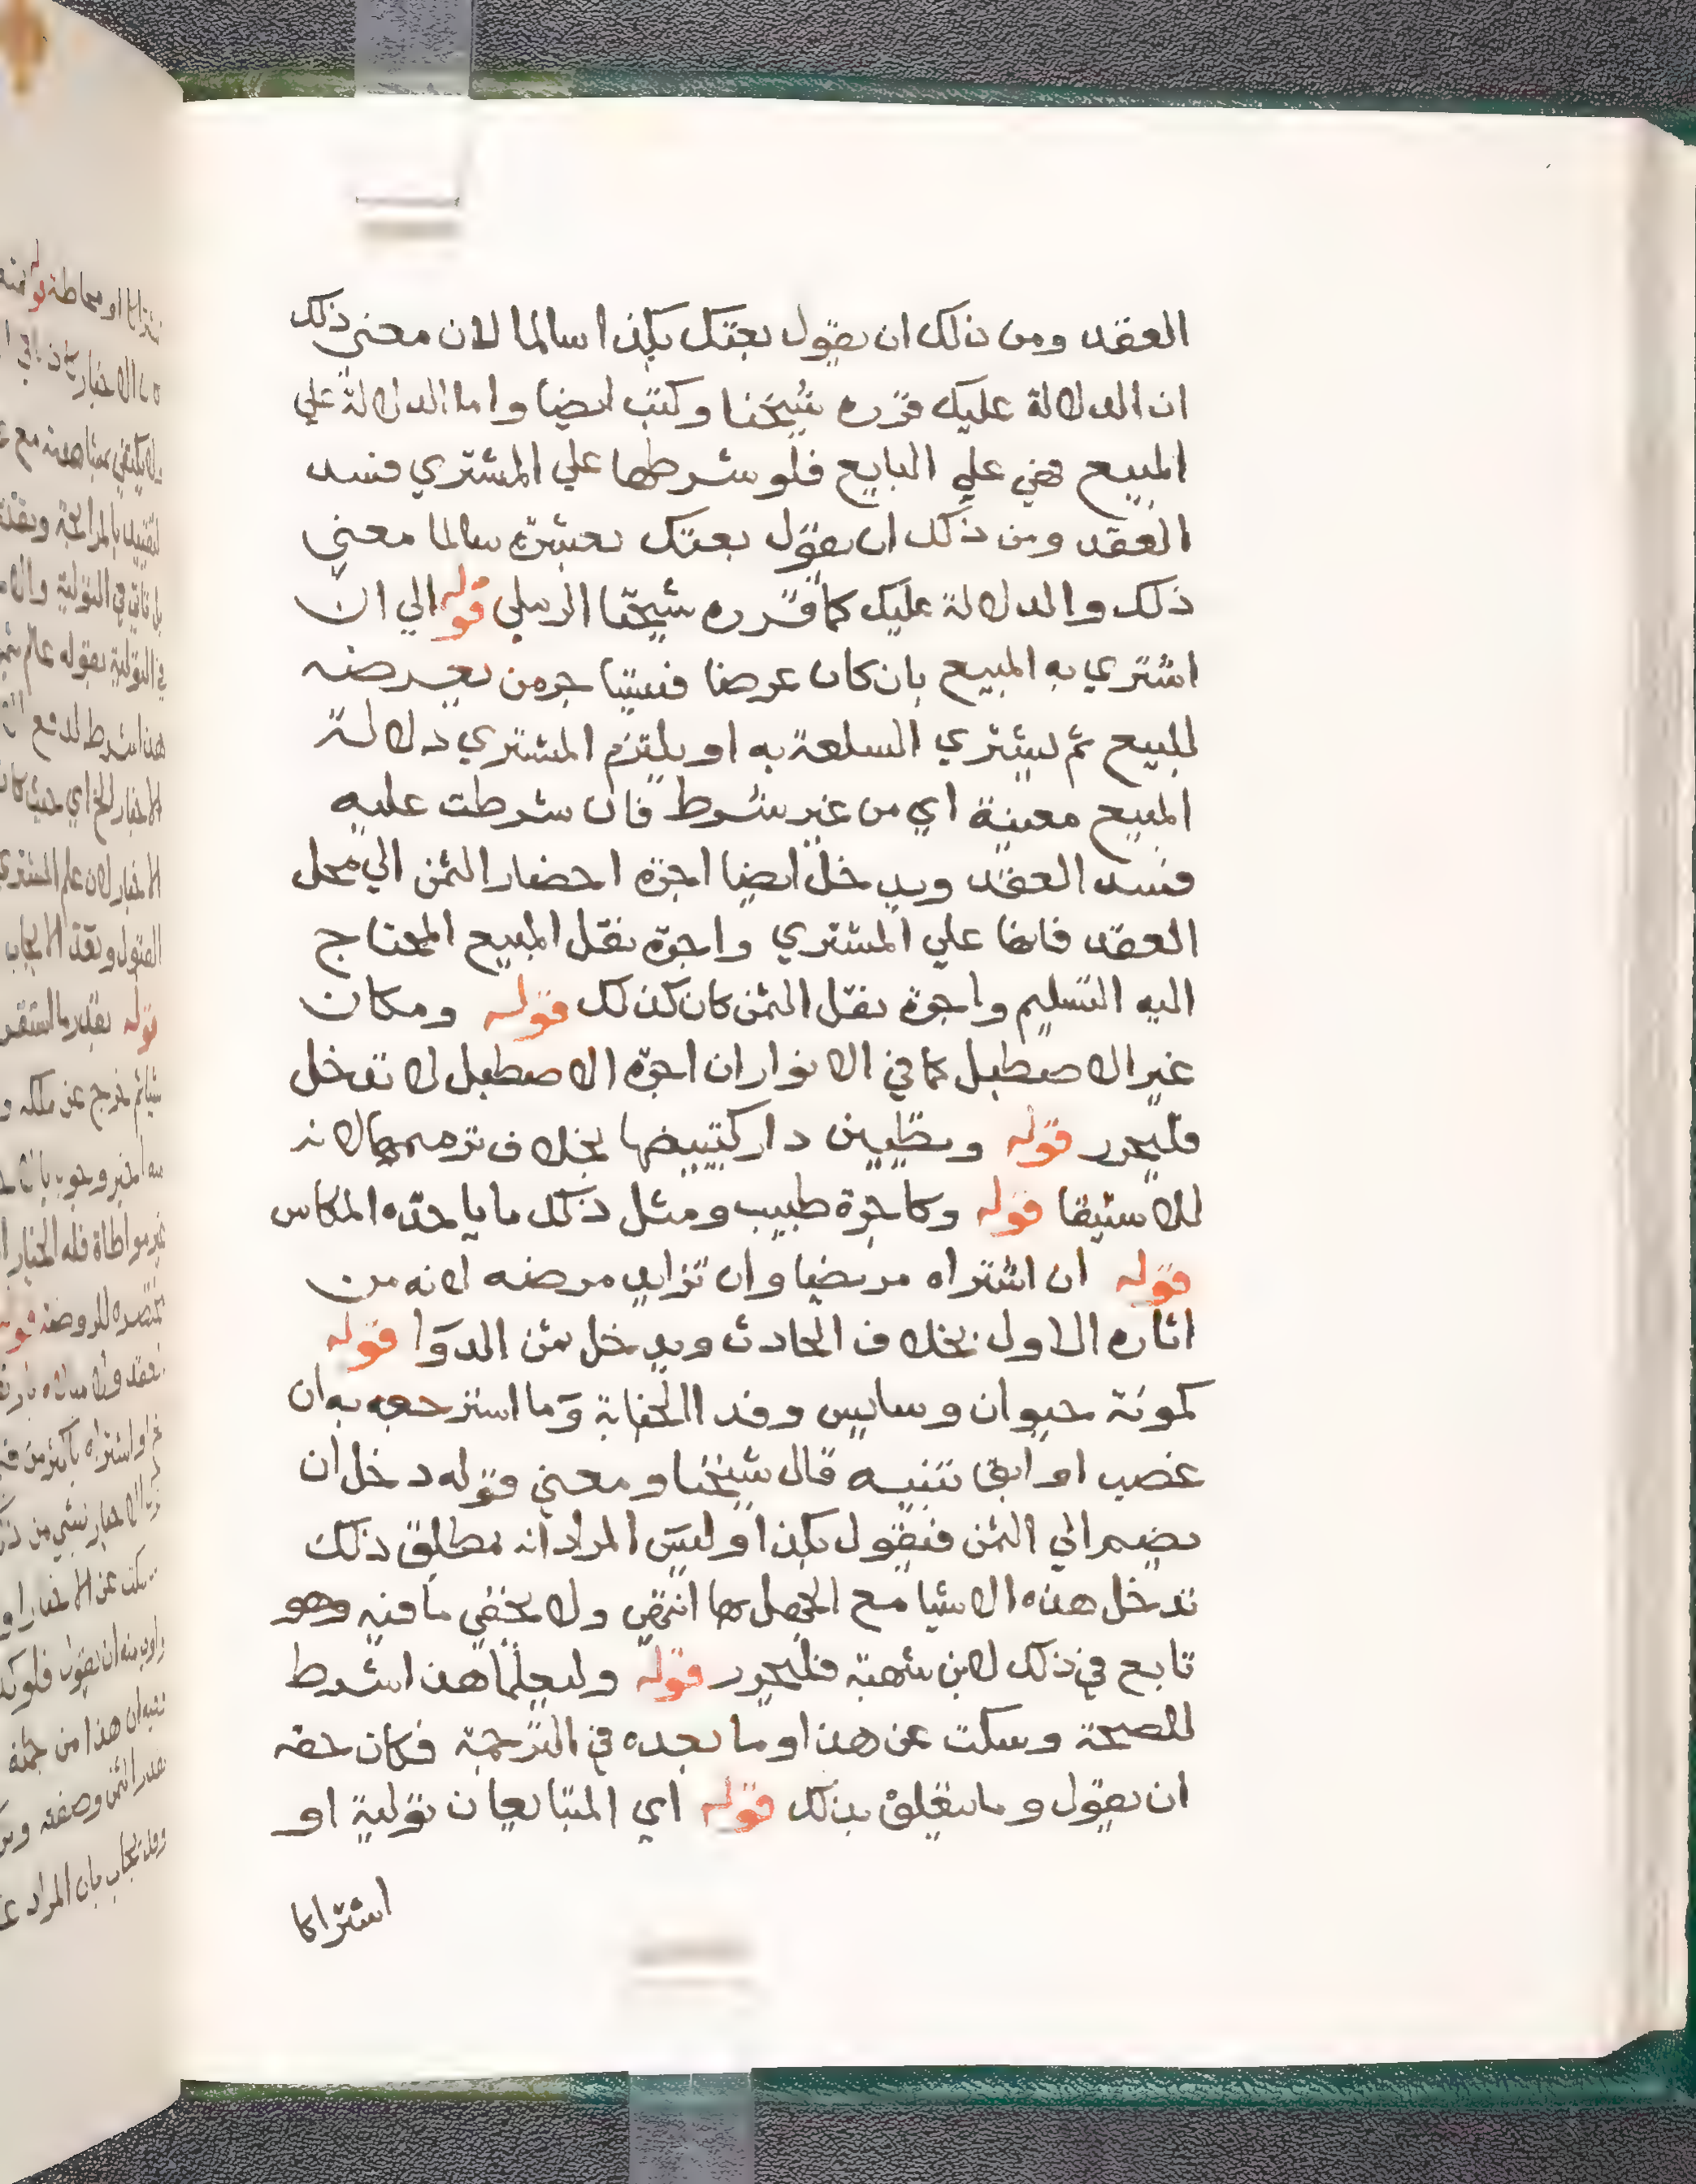 العقد ومن ذلك ان يقول بعتك بكذا سالما لان معني ذلك
ان الدلالة عليك قرره شيخنا وكتب ايضا واما الدلالة علي
المبيع فهي علي البايع فلو شرطها علي المشتري فسد
العقد ومن ذلك ان يقول بعتك بعشرة سالما معني
ذلك والدلالة عليك كما قرره شيخنا الرملي قوله الي ان
اشتري به المبيع بان كان عرضا فيستاجر من يعرضه
للبيع ثم يشتري السلعة به او يلتزم المشتري دلالة
المبيع معينة اي من غير شرط فان شرطت عليه
فسد العقد ويدخل ايضا اجرة احضار الثمن الي محل
العقد فانها علي المشتري واجرة نقل المبيع المحتاج
اليه التسليم واجرة نقل الثمن كان كذلك قوله ومكان
غير الاصطبل كما في الانوار ان اجرة الاصطبل لا تدخل
فليحرر قوله وتطيين دار كتبييضها بخلاف ترميمها لانه
للاستيفا قوله وكاجرة طبيب ومثل ذلك ما ياخذه المكاس
قوله ان اشتراه مريضا وان تزايد مرضه لانه من
اثاره الاول بخلاف الحادث ويدخل ثمن الدوا قوله
كمونة حيوان وسايس وفدا الجناية وما استرجعه به ان
غصب او ابق تنبيه قال شيخنا ومعني قوله دخل ان
يضم الي الثمن فيقول بكذا وليس المراد انه بمطلق ذلك
تدخل هذه الاشيا مع الجهل بها انتهي ولا يخفي ما فيه وهو
تابع في ذلك لابن شهبة فليحرر قوله وليعلما هذا شرط
للصحة وسكت عن هذا وما بعده في الترجمة فكان حقه
ان يقول وما يتعلق بذلك قوله اي المتبايعان تولية او
اشتراكا